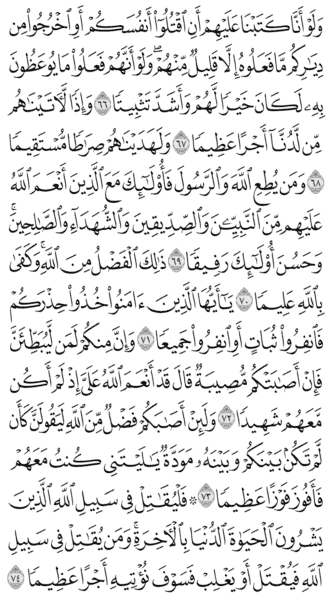 وَلَوْ أَنَّا كَتَبْنَا عَلَيْهِمْ أَنِ ٱقْتُلُوٓا۟ أَنفُسَكُمْ أَوِ ٱخْرُجُوا۟ مِن
دِيَـٰرِكُم مَّا فَعَلُوهُ إِلَّا قَلِيلٌ مِّنْهُمْ ۖ وَلَوْ أَنَّهُمْ فَعَلُوا۟ مَا يُوعَظُونَ
بِهِۦ لَكَانَ خَيْرًا لَّهُمْ وَأَشَدَّ تَثْبِيتًا ٦٦ وَإِذًا لَّـَٔاتَيْنَـٰهُم
مِّن لَّدُنَّآ أَجْرًا عَظِيمًا ٦٧ وَلَهَدَيْنَـٰهُمْ صِرَٰطًا مُّسْتَقِيمًا
٦٨ وَمَن يُطِعِ ٱللَّهَ وَٱلرَّسُولَ فَأُو۟لَـٰٓئِكَ مَعَ ٱلَّذِينَ أَنْعَمَ ٱللَّهُ
عَلَيْهِم مِّنَ ٱلنَّبِيِّـۧنَ وَٱلصِّدِّيقِينَ وَٱلشُّهَدَآءِ وَٱلصَّـٰلِحِينَ ۚ
وَحَسُنَ أُو۟لَـٰٓئِكَ رَفِيقًا ٦٩ ذَٰلِكَ ٱلْفَضْلُ مِنَ ٱللَّهِ ۚ وَكَفَىٰ
بِٱللَّهِ عَلِيمًا ٧٠ يَـٰٓأَيُّهَا ٱلَّذِينَ ءَامَنُوا۟ خُذُوا۟ حِذْرَكُمْ
فَٱنفِرُوا۟ ثُبَاتٍ أَوِ ٱنفِرُوا۟ جَمِيعًا ٧١ وَإِنَّ مِنكُمْ لَمَن لَّيُبَطِّئَنَّ
فَإِنْ أَصَـٰبَتْكُم مُّصِيبَةٌ قَالَ قَدْ أَنْعَمَ ٱللَّهُ عَلَىَّ إِذْ لَمْ أَكُن
مَّعَهُمْ شَهِيدًا ٧٢ وَلَئِنْ أَصَـٰبَكُمْ فَضْلٌ مِّنَ ٱللَّهِ لَيَقُولَنَّ كَأَن
لَّمْ تَكُنۢ بَيْنَكُمْ وَبَيْنَهُۥ مَوَدَّةٌ يَـٰلَيْتَنِى كُنتُ مَعَهُمْ
فَأَفُوزَ فَوْزًا عَظِيمًا ٧٣ ۞ فَلْيُقَـٰتِلْ فِى سَبِيلِ ٱللَّهِ ٱلَّذِينَ
يَشْرُونَ ٱلْحَيَوٰةَ ٱلدُّنْيَا بِٱلْـَٔاخِرَةِ ۚ وَمَن يُقَـٰتِلْ فِى سَبِيلِ
ٱللَّهِ فَيُقْتَلْ أَوْ يَغْلِبْ فَسَوْفَ نُؤْتِيهِ أَجْرًا عَظِيمًا ٧٤